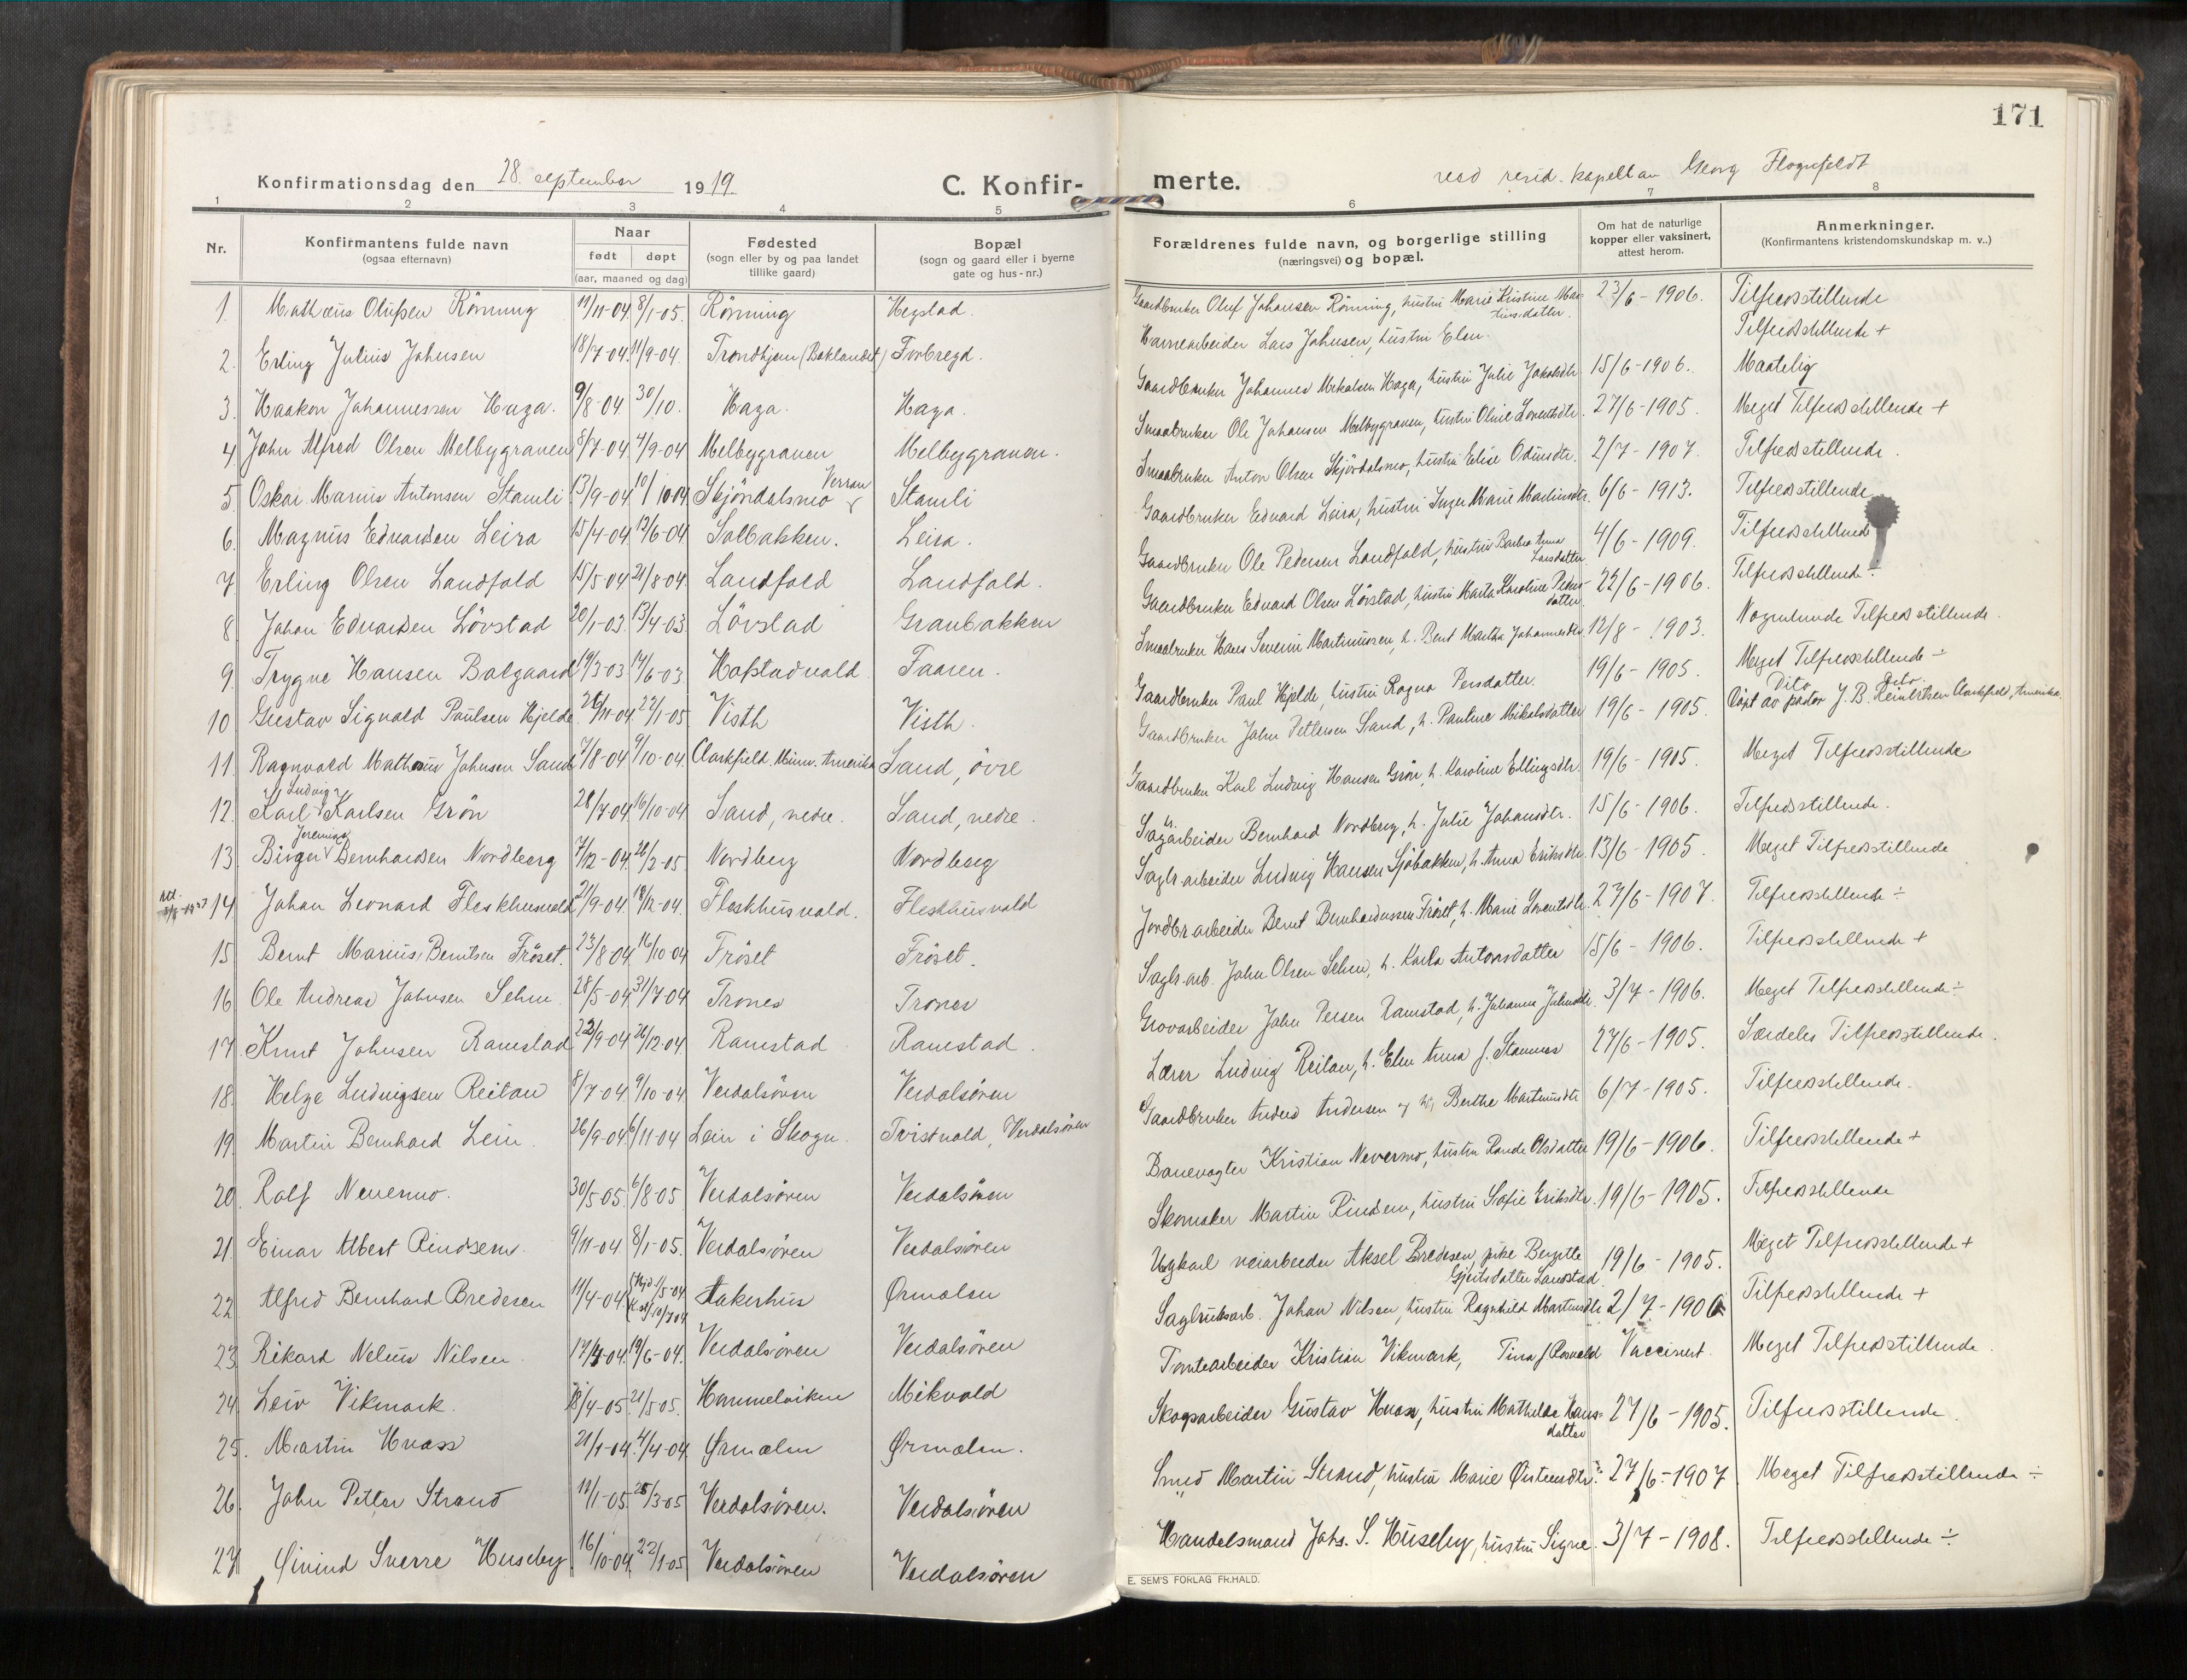 171
Konfirmationsdag den 28. september 1919. C. Konfir- merte. ved resid. kapellan Georg Flognfeldt
1 2 3 4 5 6 7 8
Nr. Konfirmantens fulde navn (ogsaa efternavn) Naar født døpt (aar, maaned og dag) Fødested (sogn eller by og paa landet tillike gaard) Bopæl (sogn og gaard eller i byerne gate og hus-nr.) Forældrenes fulde navn, og borgerlige stilling (næringsvei) og bopæl. Om hat de naturlige kopper eller vaksinert, attest herom. Anmerkninger. (Konfirmantens kristendomskundskap m. v..)
1. Mathæus Olufsen Rönning 11/11-04. 8/1-05. Rönning Hegstad. Gaardbruker Oluf Johansen Rönning, hustru Marie Kristine Mar- 23/6-1906. Tilfredsstillende
2. Erling Julius Johnsen 18/7-04. 11/9-04. Trondhjem (Baklandet) Forbregd. Lars Johnsen, hustru Elen. Tilfredsstillende +
3. Haakon Johannessen Haga. 9/8-04. 30/10. Haga. Haga. Gaardbruker Johannes Mikalsen Haga, hustru Julie Jakobsdtr. 15/6-1906. Maatelig
4. John Alfred Olsen Melbygraven 8/7-04. 4/9-04 Melbygraven Melbygraven. Smaabruker Ole Johansen Melbygraven, hustru Oline Lorentsdtr. 27/6-1905. Meget Tilfredsstillende +
5. Oskar Marius Antonsen Stamli 13/9-04. 10/10-04 Skjördalsmo Verran Stamli Smaabruker Anton Olsen Skjördalsmo, hustru Elise Odinsdtr. 2/7-1907. Tilfredsstillende.
6. Magnus Edvardsen Leira 15/4-04. 12/6-04. Solbakken. Leira. Gaardbruker Edvard Leira, hustru Inger Marie Martinsdtr. 6/6-1913. Tilfredsstillende
7. Erling Olsen Landfald 15/5-04. 21/8-04. Landfald Landfald. Gaardbruker Ole Pedersen Landfald, hustru Barbra Anna Larsdatter 4/6-1909. Tilfredsstillende
8. Johan Edvardsen Lövstad 20/1-03. 13/4-03. Lövstad Granbakken Gaardbruker Edvard Olsen Lövstad, hustru Marta Karoline Peders-datter 22/6-1906. Tilfredsstillende ÷
9. Trygve Hansen Balgaard 19/3-03 14/6-03 Hofstadvald. Faaren. Smaabruker Hans Severin Martinussen, h. Bent Martha Johannesdtr. 12/8-1903. Nogenlunde Tilfredsstillende.
10. Gustav Sigvald Paulsen Hjelde. 26/11-04. 22/1-05 Visth Visth. Gaardbruker Paul Hjelde, hustru Ragna Persdatter. 19/6-1905. Meget Tilfredsstillende ÷
11. Ragnvald Mathæus Johnsen Sand 7/8-04 9/10-04. Clarkfield. Minn. Amerika Sand, övre Gaardbruker John Pettersen Sand, h. Pauline Mikalsdatter 19/6-1905. Dito dito. Döpt av pastor J. B. Reinertsen Clarkfield, Amerika.
12. Karl Ludvig Karlsen Grön 28/7-04 16/10-04 Sand, nedre. Sand, nedre. Gaardbruker Karl Ludvig Hansen Grön, h. Karoline Ellingsdtr. 19/6-1905. Meget Tilfredsstillende
13. Birger Jeremias Bernhardsen Nordberg 7/12-04. 26/2-05. Nordberg Nordberg Sagarbeider Bernhard Nordberg, h. Julie Johansdtr. 15/6-1906. Tilfredsstillende.
14. Johan Leonard Fleskhusvald 21/9-04. 18/12-04. Fleskhusvald. Fleskhusvald Sagbr.arbeider Ludvig Hansen Sjöbakken, h. Anna Eriksdtr. 13/6-1905. Meget Tilfredsstillende
15 Bernt Marius Berntsen Fröset. 23/8-04 16/10-04 Fröset Fröset. Jordbr.arbeider Bernt Bernhardussen Fröset, h. Marie Lorentsdtr. 27/6-1907. Tilfredsstillende ÷
16. Ole Andreas Johnsen Sehm 28/5-04. 31/7-04 Trones Trones Sagbr.arb. John Olsen Sehm, h. Karla Antonsdatter 15/6-1906. Tilfredsstillende +
17. Knut Johnsen Ramstad 22/9-04. 26/12-04. Ramstad Ramstad. Grovarbeider John Persen Ramstad, h. Johanna Johnsdtr. 3/7-1906. Meget Tilfredsstillende ÷
18. Helge Ludvigsen Reitan 8/7-04. 9/10-04 Verdalsören Verdalsören Lærer Ludvig Reitan, h. Elen Anna f. Stamnes 27/6-1905. Særdeles Tilfredsstillende.
19. Martin Bernhard Lein. 26/9-04. 6/11-04 Lein i Skogn. Tvistvold, Verdalsören Gaardbruker Anders Andersen og h. Berthe Martinusdtr 6/7-1905. Tilfredsstillende.
20. Rolf Nevermo. 30/5-05. 6/8-05 Verdalsören Verdalsören Banevogter Kristian Nevermo, hustru Rande Olsdatter 19/6-1906. Tilfredsstillende +
21. Einar Albert Rindsem. 9/11-04 8/1-05. Verdalsören Verdalsören Skomaker Martin Rindsem, hustru Sofie Eriksdtr. 19/6-1905. Tilfredsstillende
22. Alfred Bernhard Bredesen 11/4-04. Aakerhus Ørmelen Ungkarl veiarbeider Aksel Bredesen, pike Bergitte Gjertsdatter Landstad. 19/6-1905. Meget Tilfredsstillende +
23. Rikard Nelius Nilsen. 17/4-04. 19/6-04. Verdalsören Verdalsören Sagbruksarb. Johan Nilsen, hustru Ragnhild Martinsdtr 2/7-1906 Tilfredsstillende +
24. Leiv Vikmark. 18/4-05. 21/5-05. Hammelviken Mikvold Tomtearbeider Kristian Vikmark, Tina f. Rosvold Vaccinert. Meget Tilfredsstillende.
25. Martin Kvass 21/1-04. 4/4-04. Ørmelen Ørmelen. Skogsarbeider Gustav Kvass, hustru Mathilde Hans-datter 27/6-1905. Tilfredsstillende
26. John Petter Strand 10/1-05. 25/3-05 Verdalsören. Verdalsören Smed Martin Strand, hustru Marie Østensdtr. 27/6-1907. Meget Tilfredsstillende ÷
27. Øivind Sverre Huseby. 16/10-04. 22/1-05 Verdalsören Verdalsören Handelsmand Johs. S. Huseby, hustru Signe. 3/7-1908. Tilfredsstillende ÷
E. SEM'S FORLAG FR.HALD.